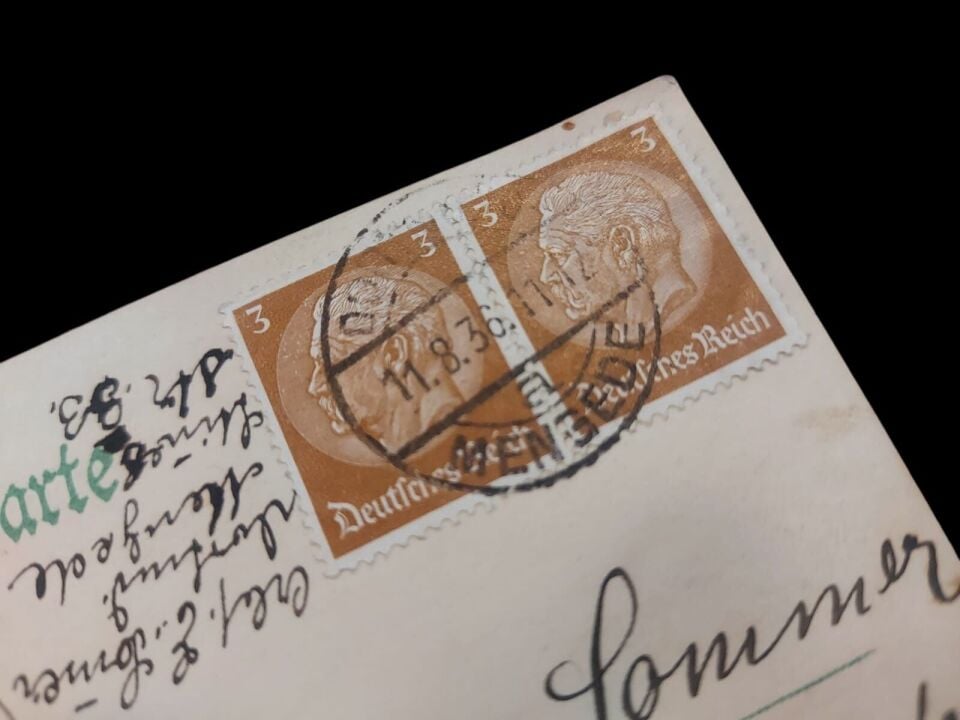 3 3
Deutsches Reich
3 3
Deutsches Reich
11.8.36.11-12
MENGEDE
arte
Abs. E.
Dortmd.
Mengede
Str. 33.
Sommer